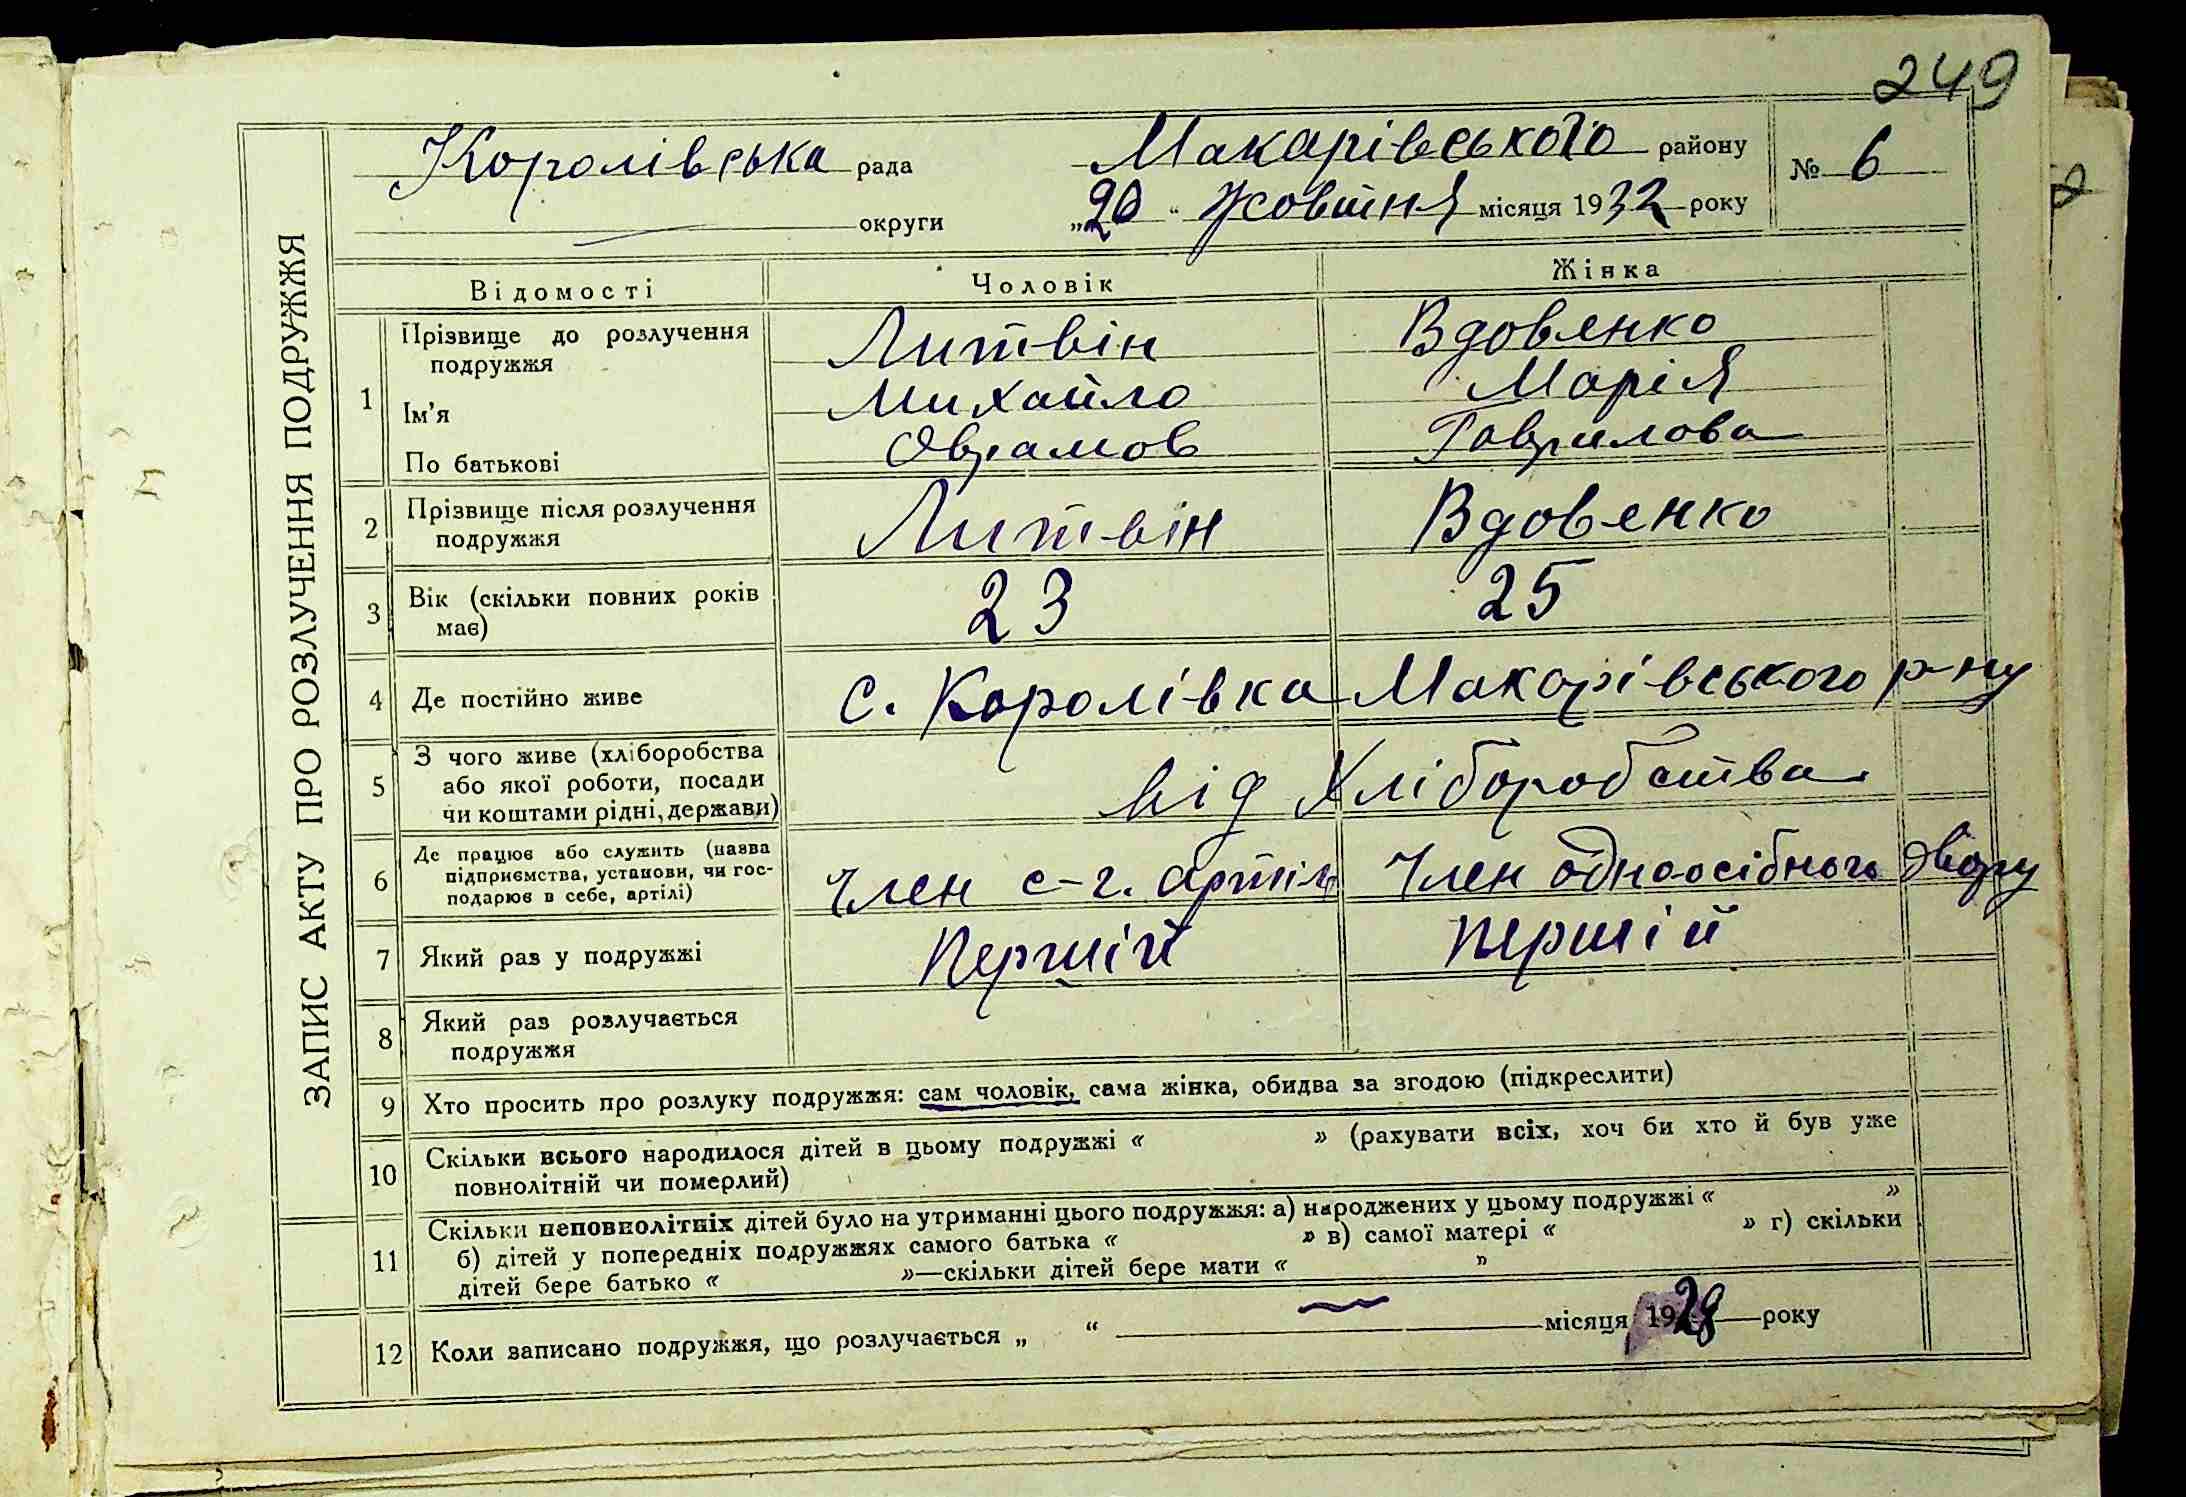 249
ЗАПИС АКТУ ПРО РОЗЛУЧЕННЯ ПОДРУЖЖЯ
Королівська рада Макарівського району № 6
округи „20“ жовтня місяця 1932 року
Відомості Чоловік Жінка
1 Прізвище до розлучення подружжя Литвін Вдовенко
Ім'я Михайло Марія
По батькові Аврамов Гаврилова
2 Прізвище після розлучення подружжя Литвін Вдовенко
3 Вік (скільки повних років має) 23 25
4 Де постійно живе с. Королівка Макарівського р-ну
5 З чого живе (хліборобства або якої роботи, посади чи коштами рідні, держави) від Хліборобства
6 Де працює або служить (назва підприємства, установи, чи господарює в себе, артілі) Член с-г. артіль Член одноосібного двору
7 Який раз у подружжі Першій першій
8 Який раз розлучається подружжя
9 Хто просить про розлуку подружжя: сам чоловік, сама жінка, обидва за згодою (підкреслити)
10 Скільки всього народилося дітей в цьому подружжі « » (рахувати всіх, хоч би хто й був уже
повнолітній чи померлий)
11 Скільки неповнолітніх дітей було на утриманні цього подружжя: а) народжених у цьому подружжі « »
б) дітей у попередніх подружжях самого батька « » в) самої матері « » г) скільки
дітей бере батько « »—скільки дітей бере мати « »
12 Коли записано подружжя, що розлучається „ “ — місяця 1928 року